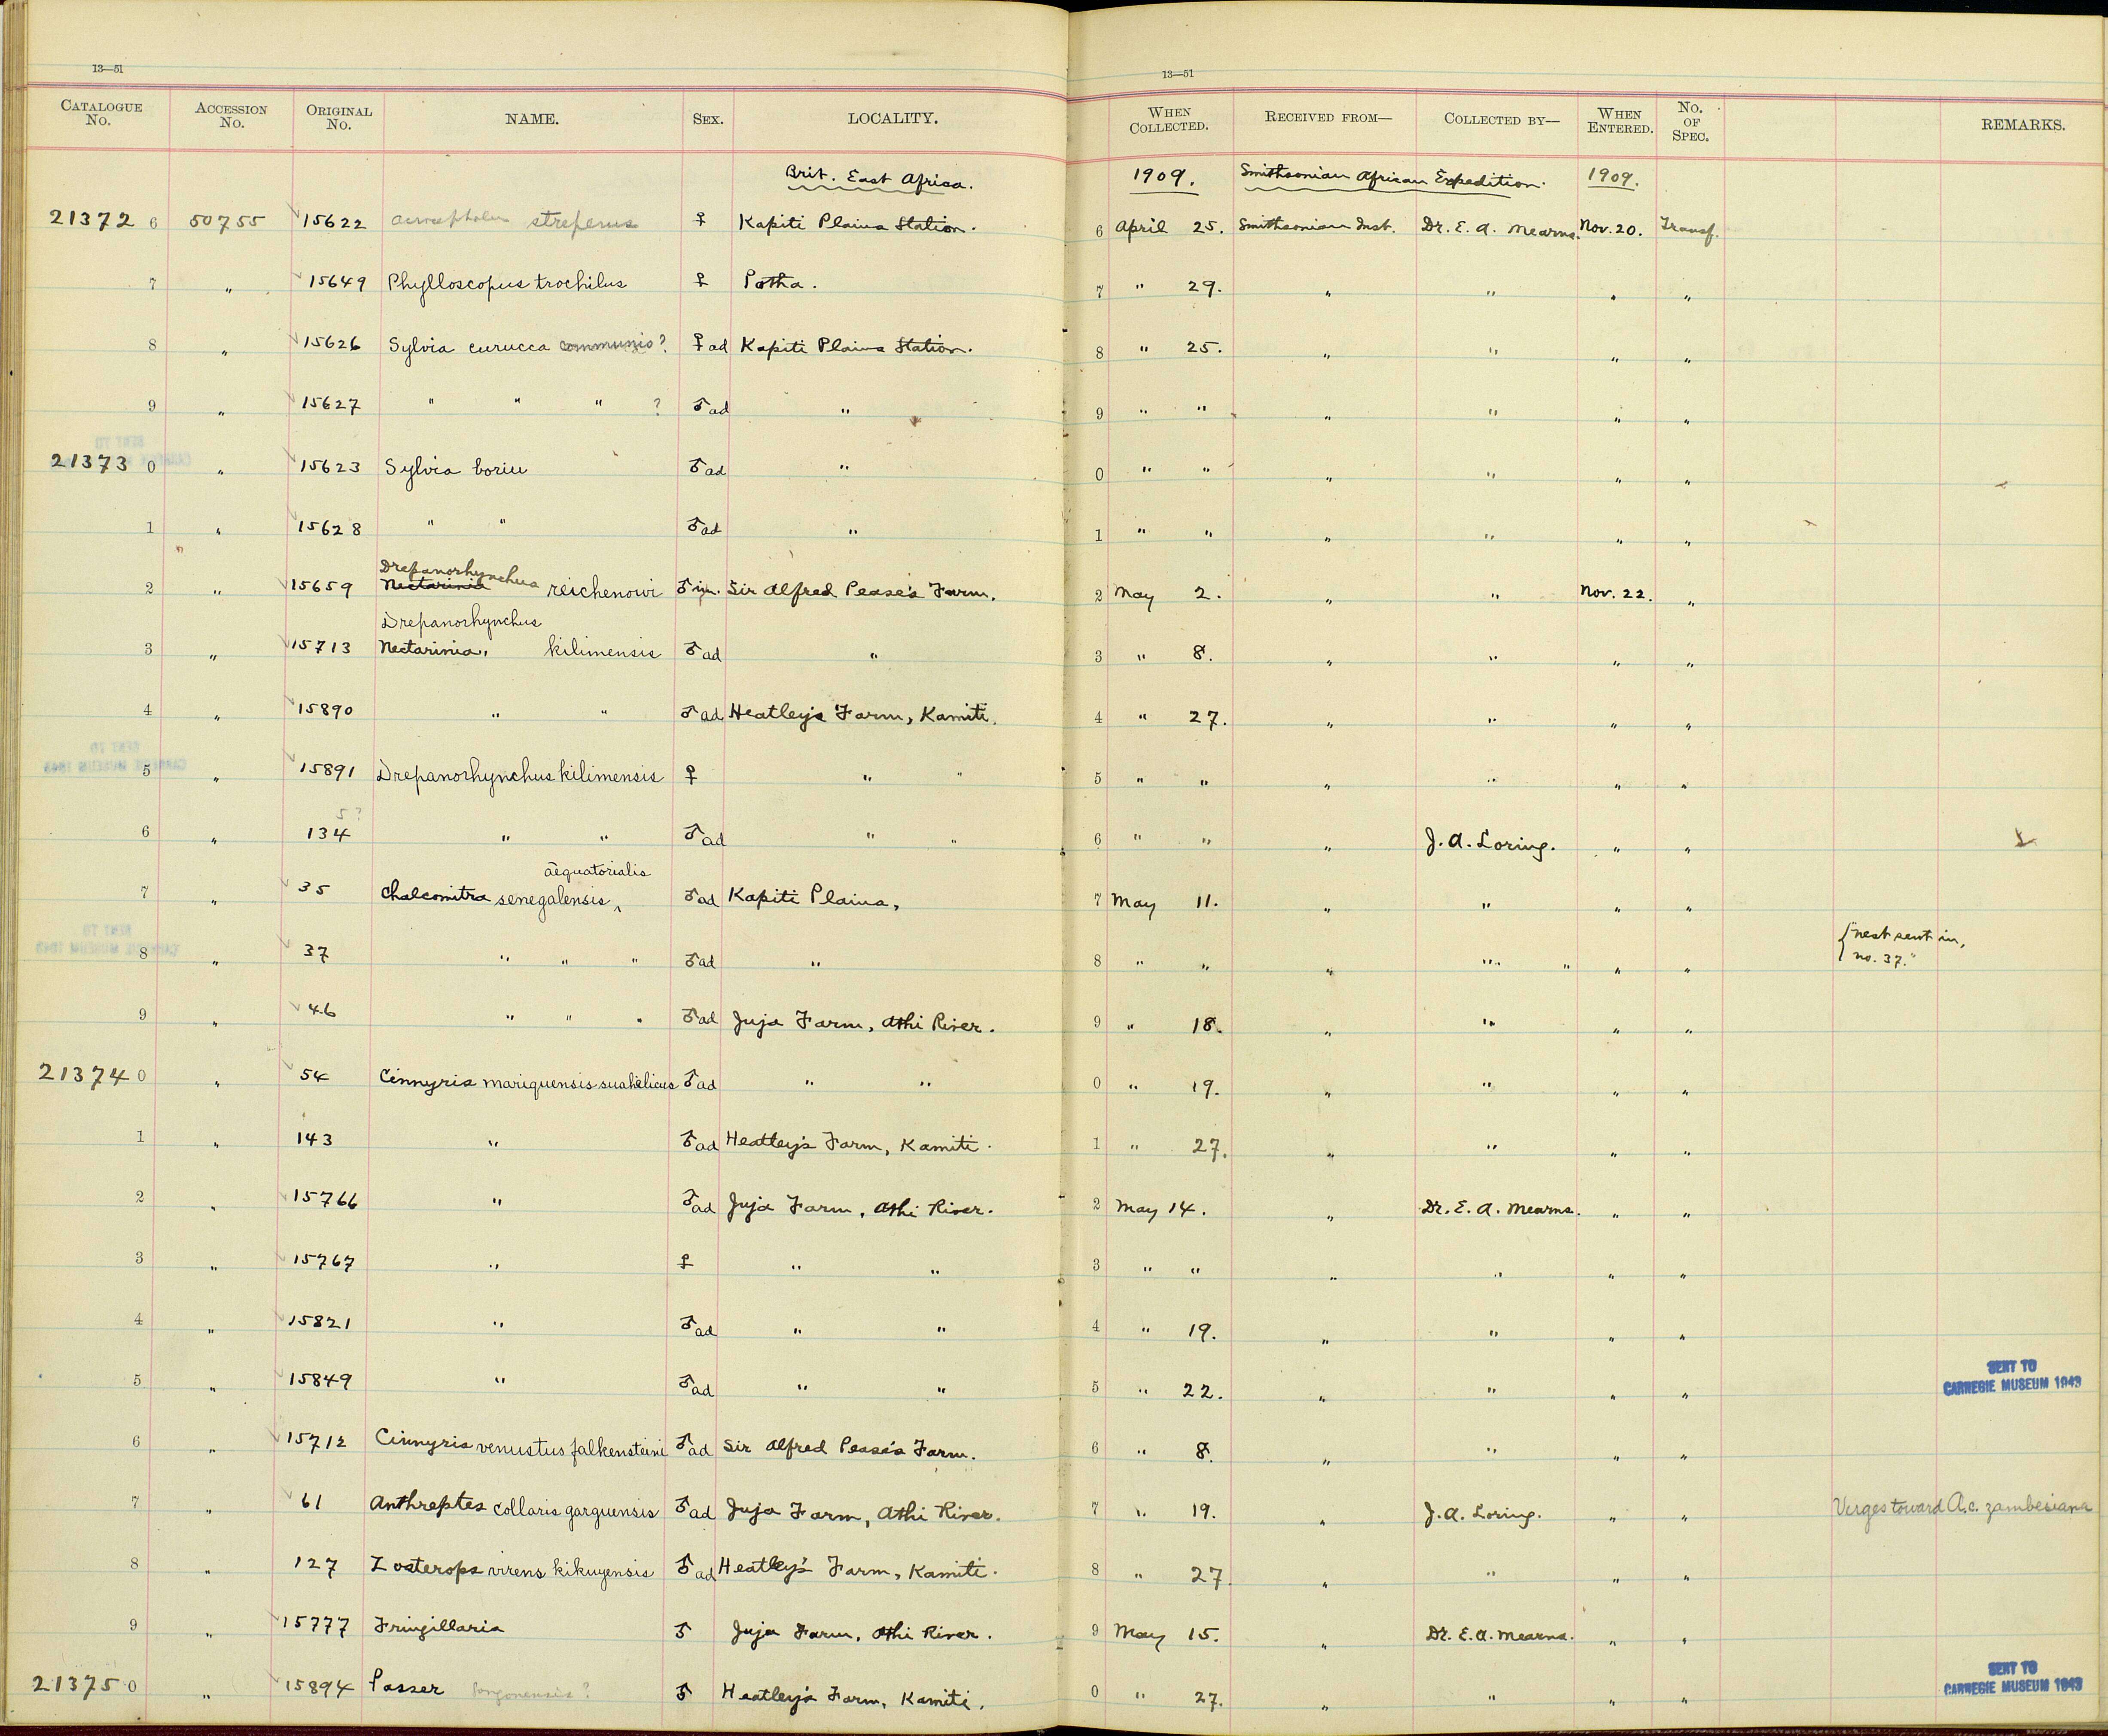 13—51
13—51
CATALOGUE No. ACCESSION No. ORIGINAL No. NAME. SEX. LOCALITY. WHEN COLLECTED. RECEIVED FROM— COLLECTED BY— WHEN ENTERED. No. OF SPEC. REMARKS.
Brit. East Africa. 1909. Smithsonian African Expedition. 1909.
21372 6 50755 15622 streperus ♀ Kapiti Plains Station. 6 April 25. Smithsonian Inst. Dr. E. A. Mearns. Nov. 20. Transf.
7 " 15649 Phylloscopus trochilus ♀ Potha. 7 " 29. " " " "
8 " 15626 Sylvia curucca communis? ♀ ad Kapiti Plains Station. 8 " 25. " " " "
9 " 15627 " " " ? ♂ ad " 9 " " " " " "
21373 0 " 15623 Sylvia borin ♂ ad " 0 " " " " " "
1 " 15628 " " ♂ ad " 1 " " " " " "
Drepanorhynchus
2 " 15659 Nectarinia reichenowi ♂ im. Sir Alfred Pease's Farm. 2 May 2. " " Nov. 22. "
Drepanorhynchus
3 " 15713 Nectarinia, kilimensis ♂ ad " 3 " 8. " " " "
4 " 15890 " " ♂ ad Heatley's Farm, Kamiti. 4 " 27. " " " "
5 " 15891 Drepanorhynchus kilimensis ♀ " " 5 " " " " " "
5?
6 " 134 " " ♂ ad " " 6 " " " J. A. Loring. " "
aequatorialis
7 " 35 Chalcomitra senegalensis ‸ ♂ ad Kapiti Plains, 7 May 11. " " " "
8 " 37 " " " ♂ ad " 8 " " " " " " " {nest sent in,
no. 37."
9 " 46 " " " ♂ ad Juja Farm, Athi River. 9 " 18. " " " "
21374 0 " 54 Cinnyris mariquensis suahelicus ♂ ad " " 0 " 19. " " " "
1 " 143 " ♂ ad Heatley's Farm, Kamiti. 1 " 27. " " " "
2 " 15766 " ♂ ad Juja Farm, Athi River. 2 May 14. " Dr. E. A. Mearns. " "
3 " 15767 " ♀ " " 3 " " " " " "
4 " 15821 " ♂ ad " " 4 " 19. " " " "
5 " 15849 " ♂ ad " " 5 " 22. " " " " SENT TO
CARNEGIE MUSEUM 1943
6 " 15712 Cinnyris venustus falkensteini ♂ ad Sir Alfred Pease's Farm. 6 " 8. " " " "
7 " 61 Anthreptes collaris garguensis ♂ ad Juja Farm, Athi River. 7 " 19. " J. A. Loring. " " Verges toward A.c. zambesiana
8 " 127 Zosterops virens kikuyensis ♂ ad Heatley's Farm, Kamiti. 8 " 27 " " " "
9 " 15777 Fringillaria ♂ Juja Farm, Athi River. 9 May 15. " Dr. E. A. Mearns. " "
21375 0 " 15894 Passer ♂ Heatley's Farm, Kamiti. 0 " 27. " " " " SENT TO
CARNEGIE MUSEUM 1943